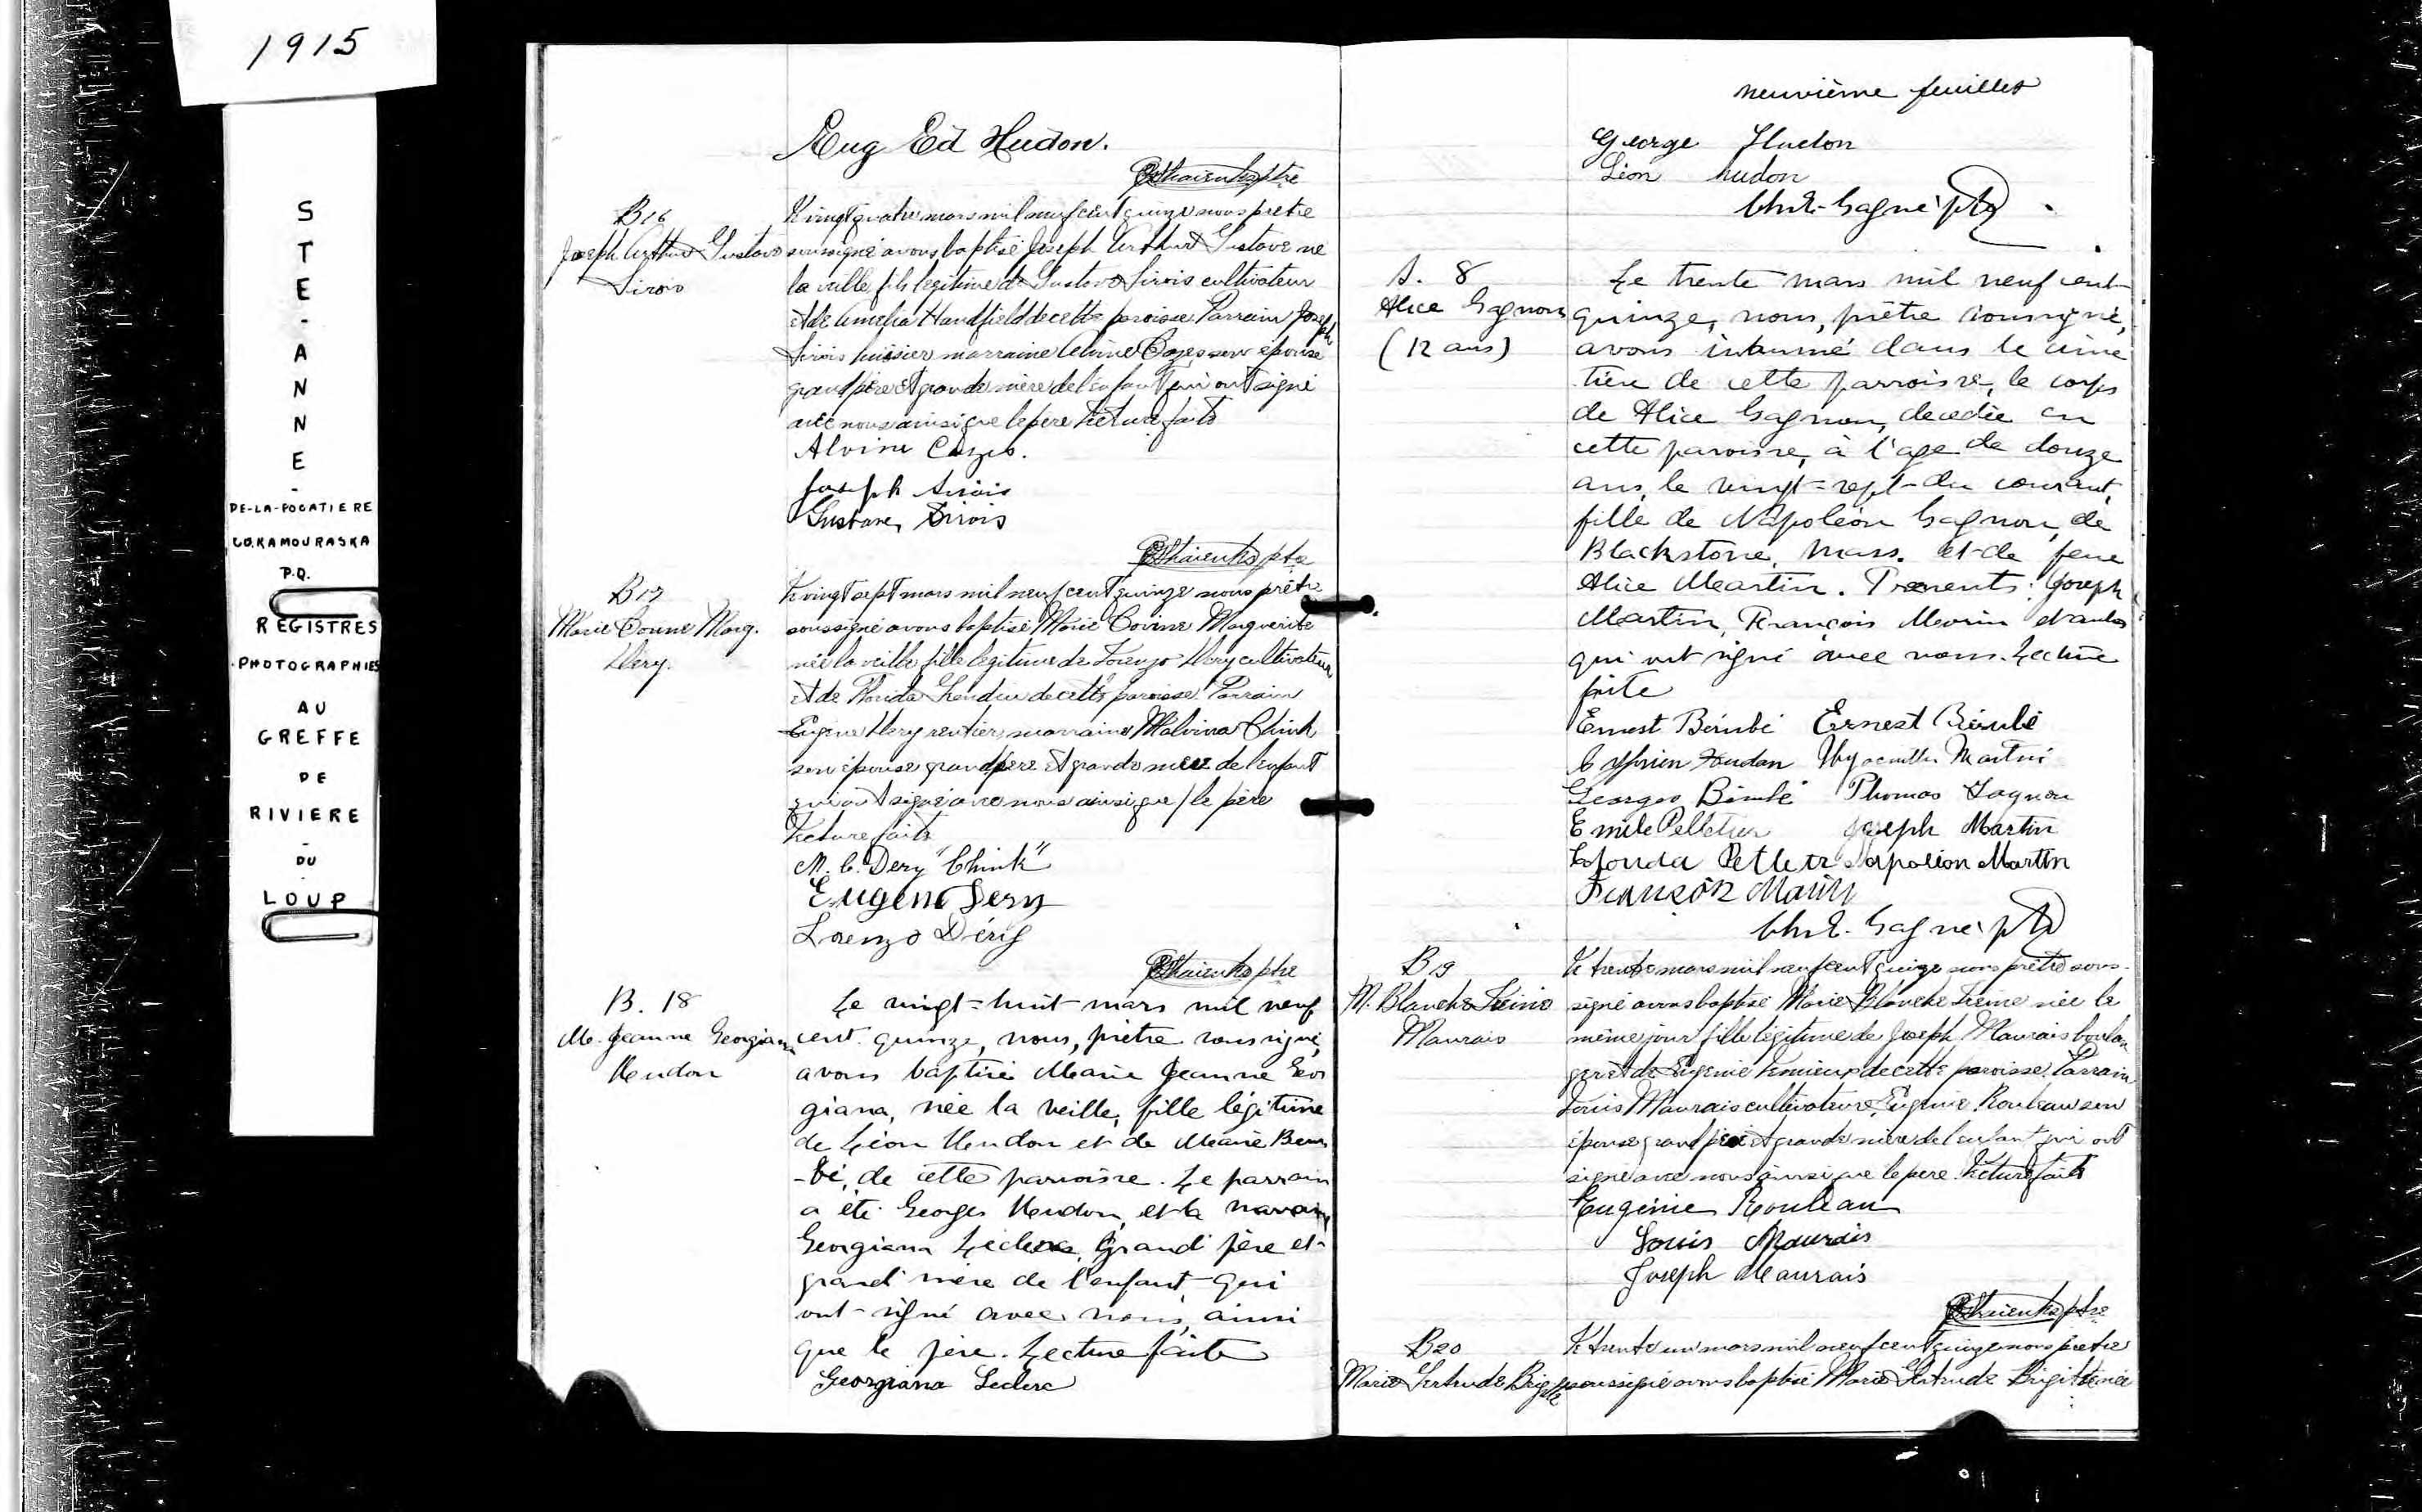 1915
STE-ANNE-
DE-LA-POCATIERE
CO. KAMOURASKA
P.Q.
REGISTRES
PHOTOGRAPHIES
AU
GREFFE
DE
RIVIERE
-
DU
-
LOUP
Eug Ed Hudon.
ptre
B16
Joseph Arthur Gustave
Sirois
Le vingt quatre mars mil neuf cent quinze nous prêtre
soussigné avons baptisé Joseph Arthur Gustave né
la veille fils légitime de Gustave Sirois cultivateur
et de Amelia Handfield de cette paroisse. Parrain Joseph
Sirois huissier marraine son épouse
grand père et grande mère de l'enfant qui ont signé
avec nous ainsi que le père Lecture faite
Alvine
Joseph Sirois
Gustave Sirois
ptre
B17
Marie Corine Marg.
Déry.
Le vingt sept mars mil neuf cent quinze nous prêtre
soussigné avons baptisé Marie Corine Marguerite
née la veille fille légitime de Lorenzo Déry cultivateur
et de de cette paroisse. Parrain
Eugène Dery rentier marraine Malvina Chink
son épouse grand père et grande mère de l'enfant
qui ont signé avec nous ainsi que le père
Lecture faite
M. C. Dery "Chink"
Eugène Dery
Lorenzo Déry
ptre
B. 18
M. Jeanne Georgiana
Hudon
Le vingt=huit mars mil neuf
cent quinze, nous, prêtre soussigné,
avons baptisé Marie Jeanne Geor
giana, née la veille, fille légitime
de Léon Hudon et de Marie Beru
-bé, de cette paroisse. Le parrain
a été Georges Hudon, et la marraine
Georgiana Leclerc, Grand' père et
grand' mère de l'enfant, qui
ont signé avec nous, ainsi
que le père. Lecture faite
Georgiana Leclerc
neuvième feuillet
George Hudon
Léon hudon
Chs E. Gagné ptre
S. 8
Alice Gagnon
(12 ans)
Le trente mars mil neuf cent
quinze, nous, prêtre soussigné,
avons inhumé dans le cime
tière de cette parroisse, le corps
de Alice Gagnon, decedée en
cette paroisse, à l'age de douze
ans, le vingt=sept du courant,
fille de Napoléon Gagnon, de
Blackstone, Mass. et de feue
Alice Martin. Présents: Joseph
Martin, François Morin et autres
qui ont signé avec nous. Lecture
faite
Ernest Bérubé Ernest Bérubé
Cyprien Hudon Hyacinthe Martin
Georges Bérubé Thomas Gagnon
Emile Pelletier Joseph Martin
Pelletier Napoléon Martin
François Morin
Chs E. Gagné ptre
B19
M. Blanche Irène
Maurais
Le trente mars mil neuf cent quinze nous prêtre sous-
signé avons baptisé Marie Blanche Irène née le
même jour fille légitime de Joseph Maurais boulan
ger et de Eugénie Lemieux de cette paroisse. Parrain
Louis Maurais cultivateur, Eugénie Rouleau son
épouse grand père et grande mère de l'enfant qui ont
signé avec nous ainsi que le père. Lecture faite
Eugénie Rouleau
Louis Maurais
Joseph Maurais
ptre
B20
Marie Gertrude Brigitte
Le trente un mars mil neuf cent quinze nous prêtre
soussigné avons baptisé Marie Gertrude Brigitte née